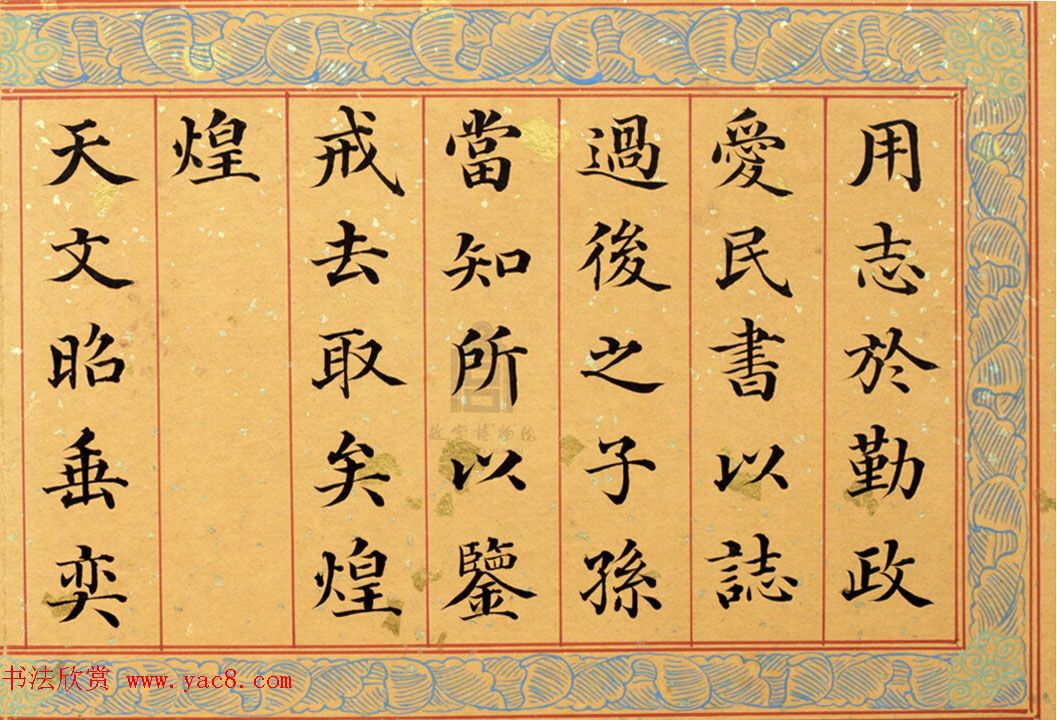 用志於勤政
愛民書以誌
過後之子孫
當知所以鑒
戒去取矣煌
煌
天文昭垂奕
故宫博物院
书法欣赏 www.yac8.com